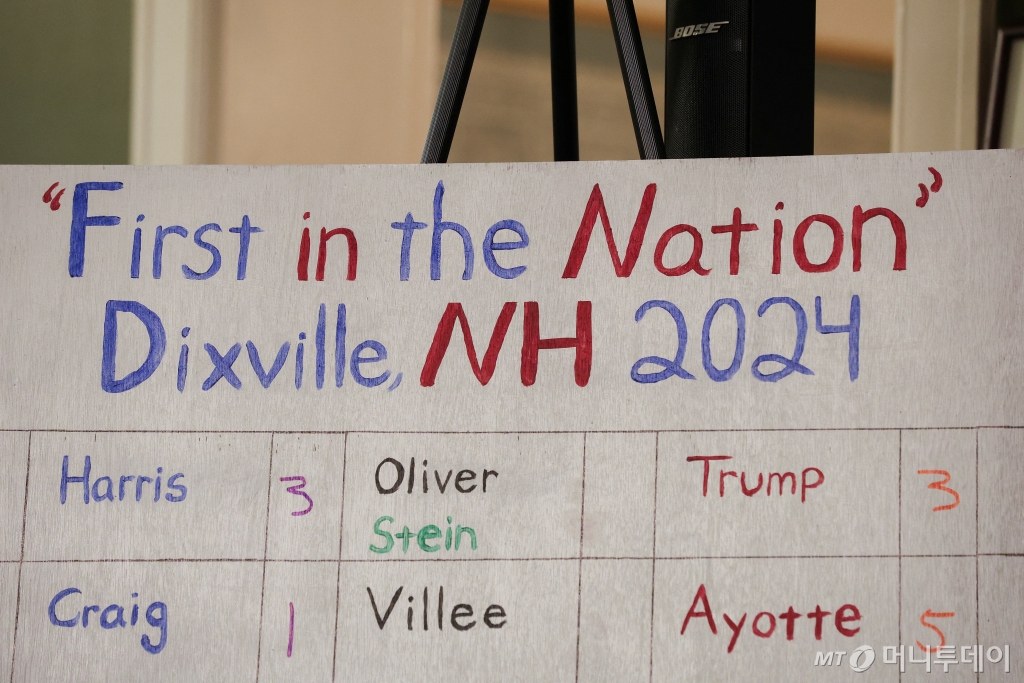 BOSE
“First in the Nation”
Dixville, NH 2024
Harris 3 Oliver Trump 3
Stein
Craig 1 Villee Ayotte 5
MT 머니투데이